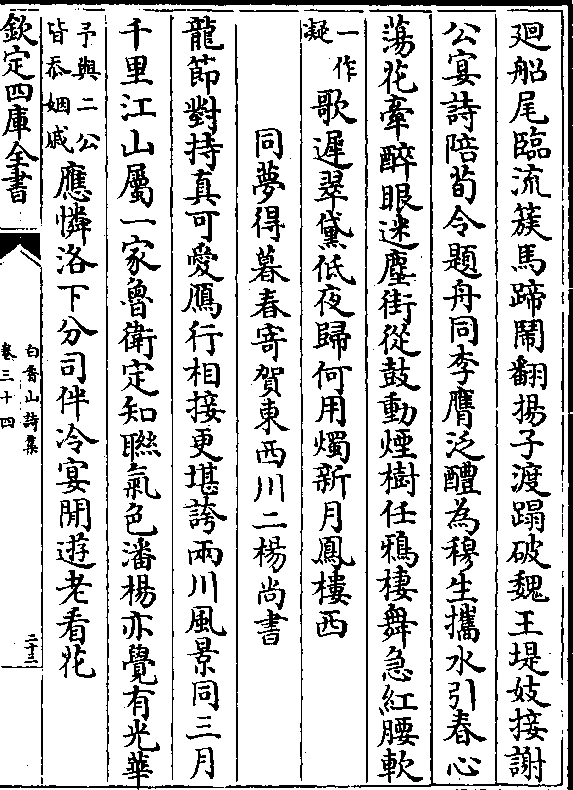 廻船尾臨流簇馬蹄鬧翻揚子渡蹋破魏王堤妓接謝
公宴詩陪荀令題舟同李膺泛醴為穆生攜水引春心
蕩花牽醉眼迷塵街從鼓動煙樹任鴉棲舞急紅腰軟
一作
凝
歌遲翠黛低夜歸何用燭新月鳳樓西
同夢得暮春寄賀東西川二楊尚書
龍節對持真可愛鴈行相接更堪誇兩川風景同三月
千里江山屬一家魯衛定知聯氣色潘楊亦覺有光華
予與二公
皆忝姻戚
應憐洛下分司伴冷宴閒遊老看花
欽定四庫全書
白香山詩集
卷三十四
二十三